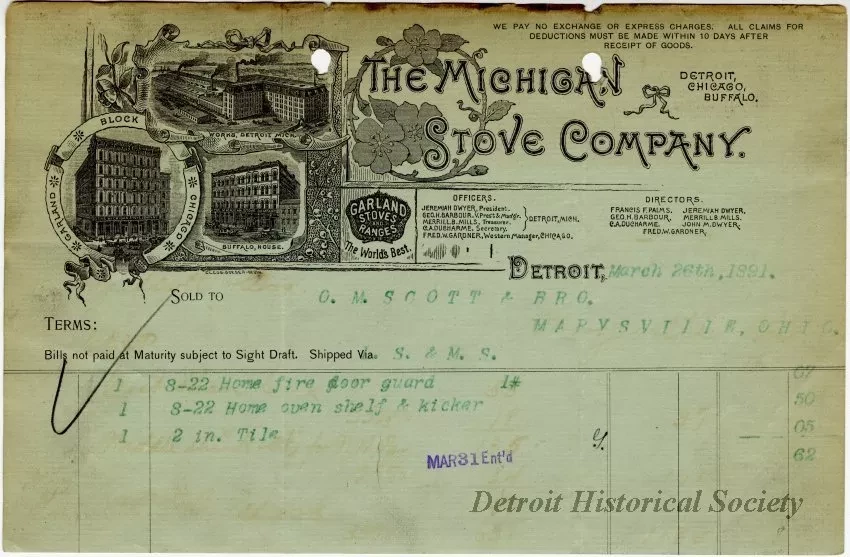 WE PAY NO EXCHANGE OR EXPRESS CHARGES. ALL CLAIMS FOR
DEDUCTIONS MUST BE MADE WITHIN 10 DAYS AFTER
RECEIPT OF GOODS.
THE MICHIGAN
STOVE COMPANY.
DETROIT,
CHICAGO,
BUFFALO.
WORKS, DETROIT MICH.
GARLAND BLOCK CHICAGO
BUFFALO, HOUSE.
GARLAND
STOVES
AND
RANGES
The World's Best.
OFFICERS.
JEREMIAH DWYER, President.
GEO. H. BARBOUR, V. Prest & Man'g'r.
MERRILL B. MILLS, Treasurer.
C. A. DUCHARME, Secretary.
DETROIT, MICH.
FRED. W. GARDNER, Western Manager, CHICAGO.
DIRECTORS.
FRANCIS F. PALMS, JEREMIAH DWYER,
GEO. H. BARBOUR, MERRILL B. MILLS,
C. A. DUCHARME, JOHN M. DWYER,
FRED. W. GARDNER,
DETROIT, March 26th, 1891.
SOLD TO O. M. SCOTT & BRO.
MARYSVILLE, OHIO.
TERMS:
Bills not paid at Maturity subject to Sight Draft. Shipped Via L. S. & M. S.
1 8-22 Home fire door guard 1# 07
1 8-22 Home oven shelf & kicker 50
1 2 in. Tile 05
62
MAR 31 Ent'd
Detroit Historical Society